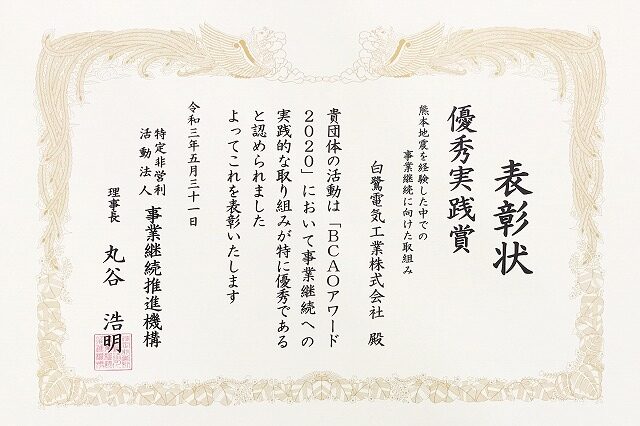 表彰状
優秀実践賞
熊本地震を経験した中での
事業継続に向けた取組み
白鷺電気工業株式会社 殿
貴団体の活動は「BCAOアワード
2020」において事業継続への
実践的な取り組みが特に優秀である
と認められました
よってこれを表彰いたします
令和三年五月三十一日
特定非営利
活動法人 事業継続推進機構
理事長 丸谷 浩明